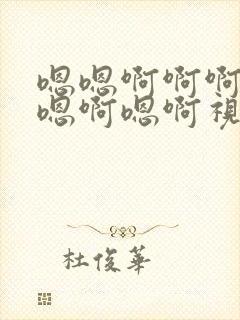 嗯嗯啊啊啊
嗯啊嗯啊視
杜俊華